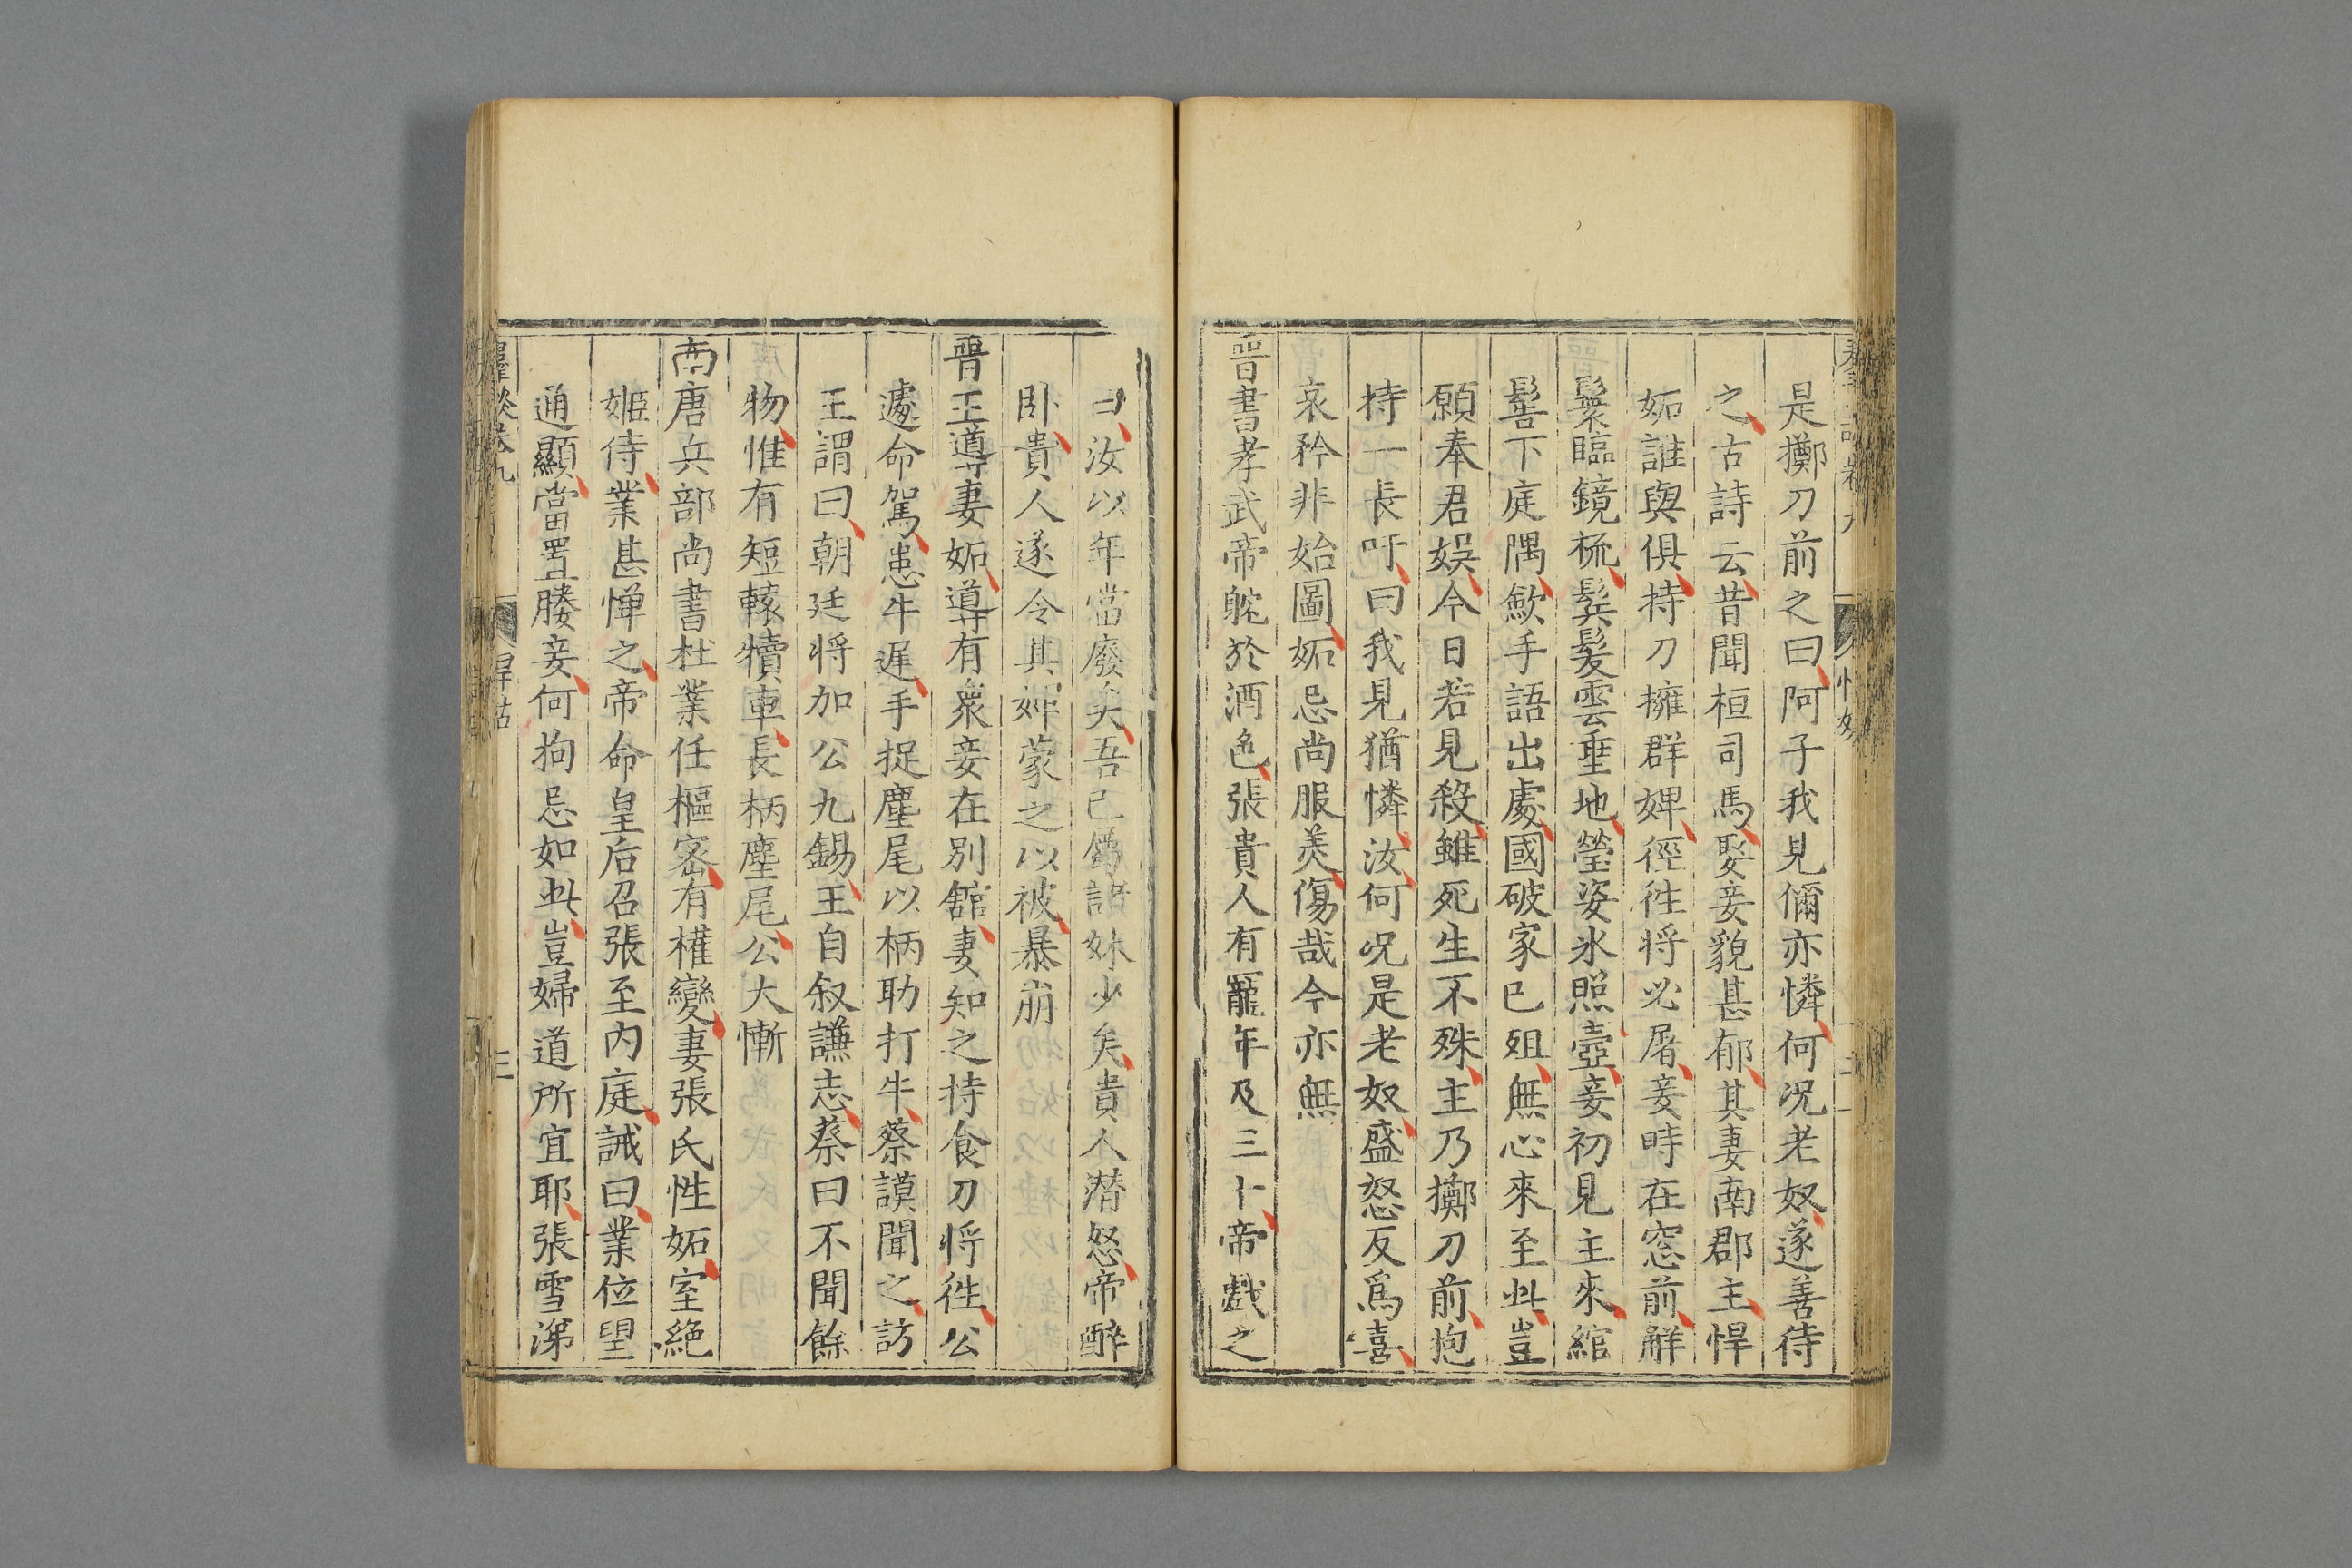 是擲刀前之曰阿子我見儞亦憐何况老奴遂善待
之古詩云昔聞桓司馬娶妾貌甚郁其妻南郡主悍
妬誰與俱持刀擁群婢徑徃将必屠妾時在窓前觧
鬟臨鏡梳鬂髪雲垂地瑩姿氷照壺妾初見主來綰
髻下庭隅歛手語出處國破家已殂無心來至此豈
願奉君娱今日若見殺雖死生不殊主乃擲刀前抱
持一長吁曰我見猶憐汝何况是老奴盛怒反爲喜
哀矜非始圖妬忌尚服羙傷哉今亦無
晋書孝武帝躭於酒色張貴人有寵年及三十帝戯之
曰汝以年當廢矣吾已屬諸妹少矣貴人潜怒帝醉
卧貴人遂令其婢蒙之以被暴崩
晋王導妻妬導有衆妾在別舘妻知之持食刀将徃公
遽命駕患牛遅手捉麈尾以柄助打牛蔡謨聞之訪
王謂曰朝廷将加公九錫王自叙謙志蔡曰不聞餘
物惟有短轅犢車長柄麈尾公大慚
南唐兵部尚書杜業任樞宻有權變妻張氏性妬室絶
姬侍業甚憚之帝命皇后召張至内庭誡曰業位望
通顯當置媵妾何拘忌如此豈婦道所宜耶張雪涕
談卷九
三